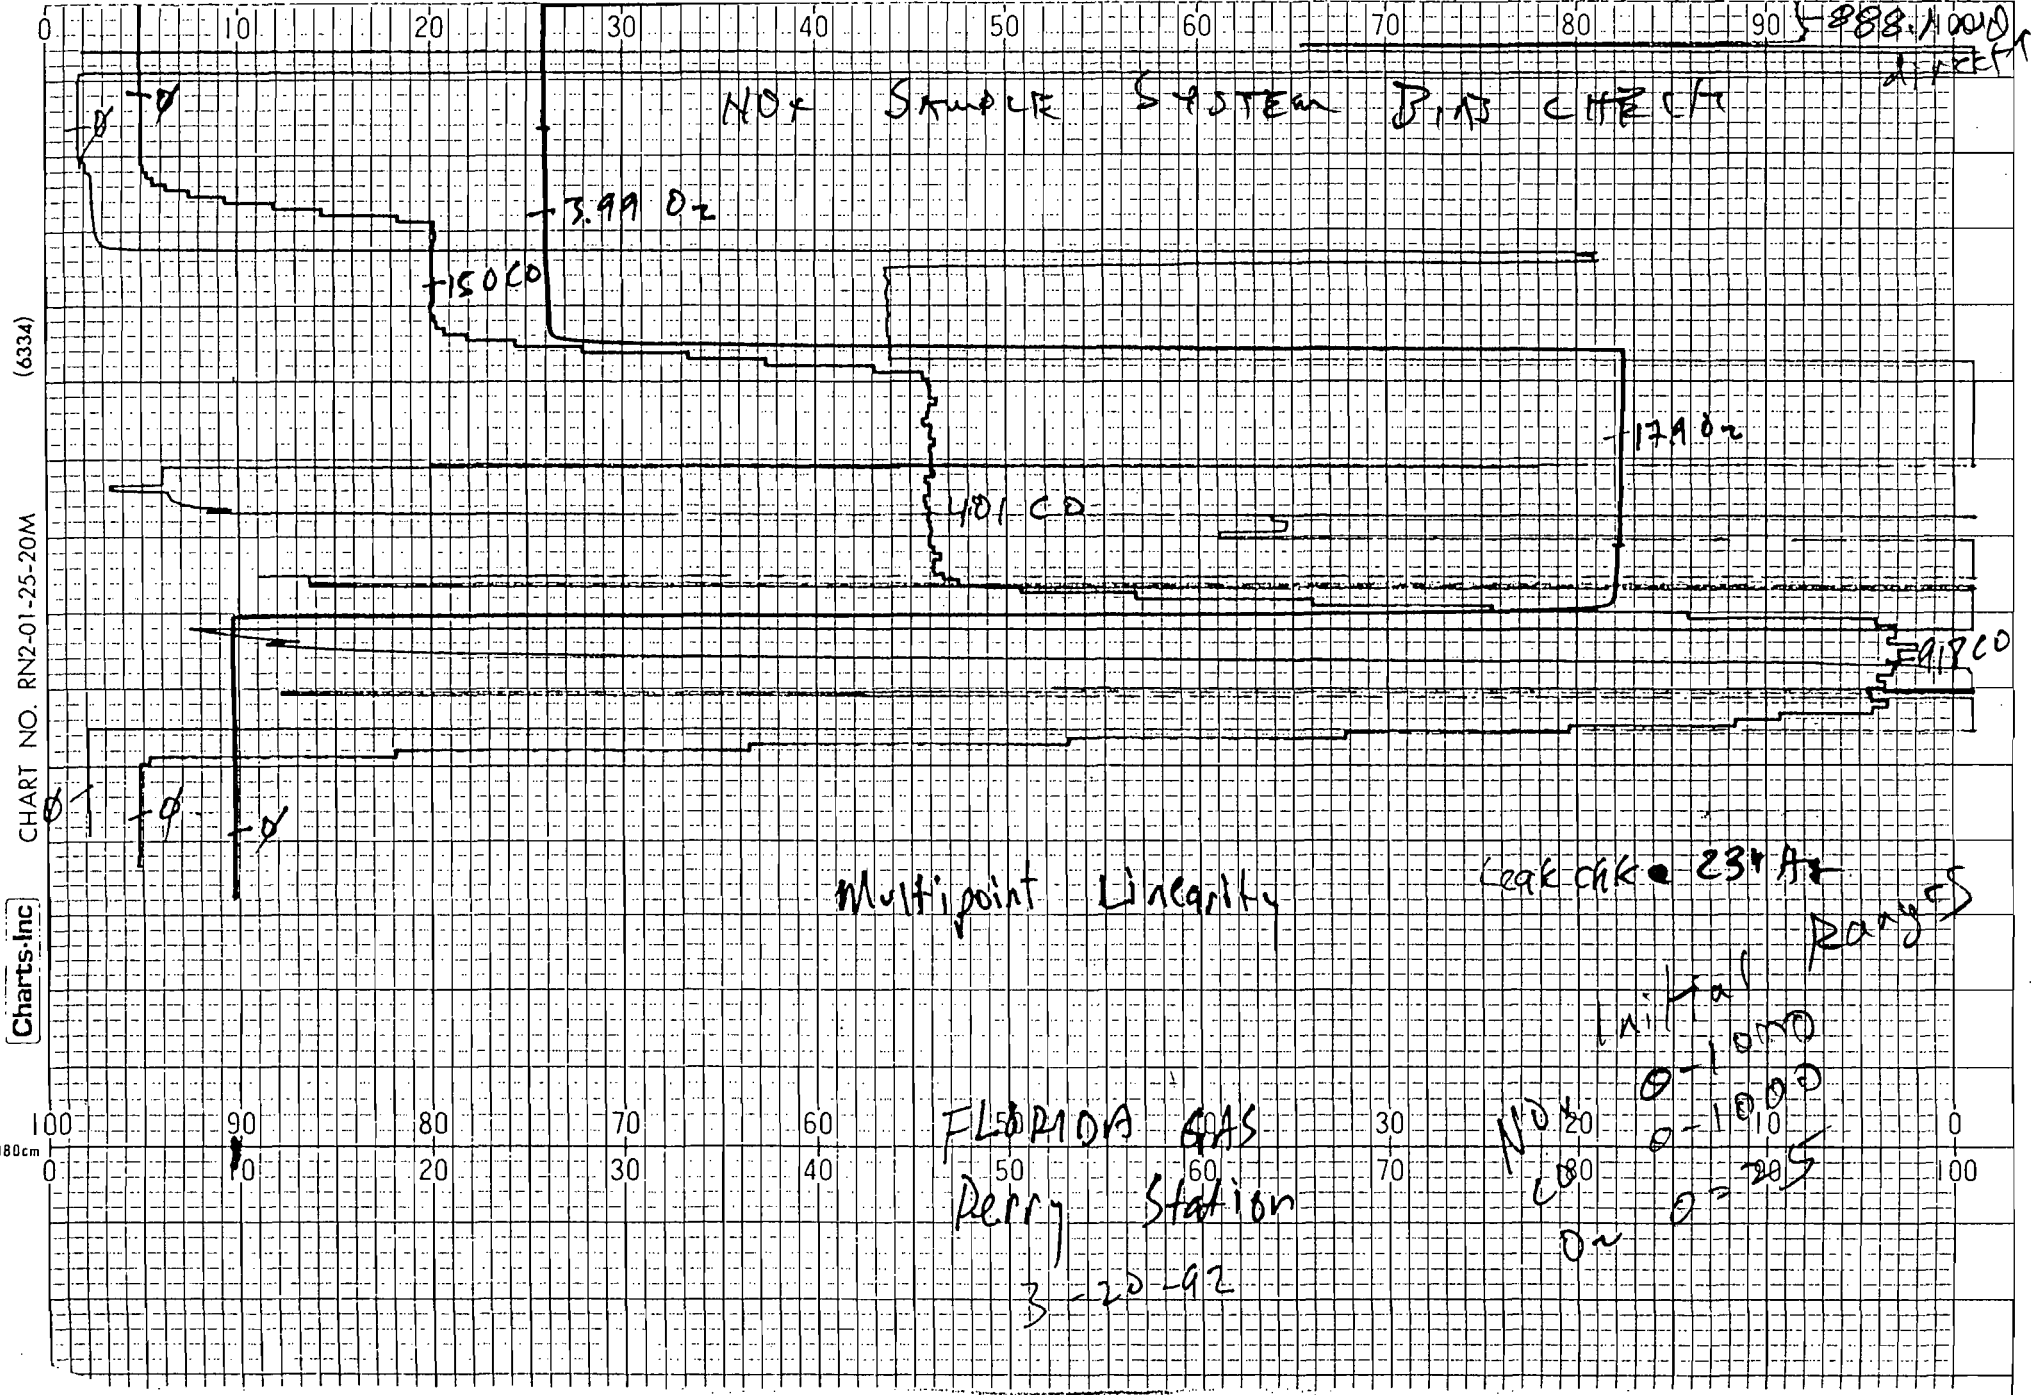 0 10 20 30 40 50 60 70 80 90
direct
NOx SAMPLE SYSTEM BIAS CHECK
Ø
Ø
3.99 O2
150 CO
(6334)
17.9 O2
401 CO
918 CO
CHART NO. RN2-01-25-20M
Ø
Ø
Ø
Leak chk
Multipoint Linearity
Charts-Inc
Ranges
Initial
NOx 0-1000
CO 0-1000
O2 0-25
100 90 80 70 60 50 40 30 20 10 0
0 10 20 30 40 50 60 70 80 90 100
FLORIDA GAS
Perry Station
3-20-92